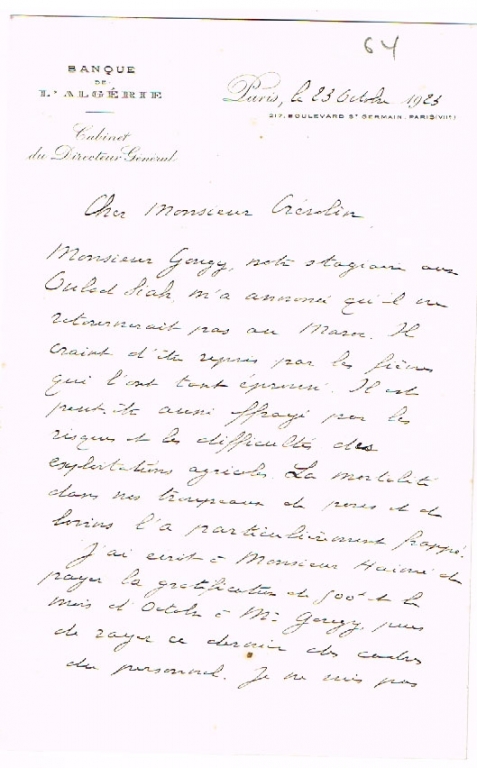 64
BANQUE
DE
L'ALGÉRIE
Cabinet
du Directeur Général
Paris, le 23 Octobre 1923
217, BOULEVARD ST GERMAIN, PARIS (VIIe)
Cher Monsieur
Monsieur Gougy, notre stagiaire aux
Ouled Siah, m'a annoncé qu'il ne
retournerait pas au Maroc. Il
craint d'être repris par les fièvres
qui l'ont tant éprouvé. Il est
peut-être aussi effrayé par les
risques et les difficultés des
exploitations agricoles. La mortalité
dans nos troupeaux de porcs et de
bovins l'a particulièrement frappé.
J'ai écrit à Monsieur de
payer la gratification de 500f et le
mois d'Octobre à Mr Gougy, puis
de rayer ce dernier des cadres
du personnel. Je ne suis pas